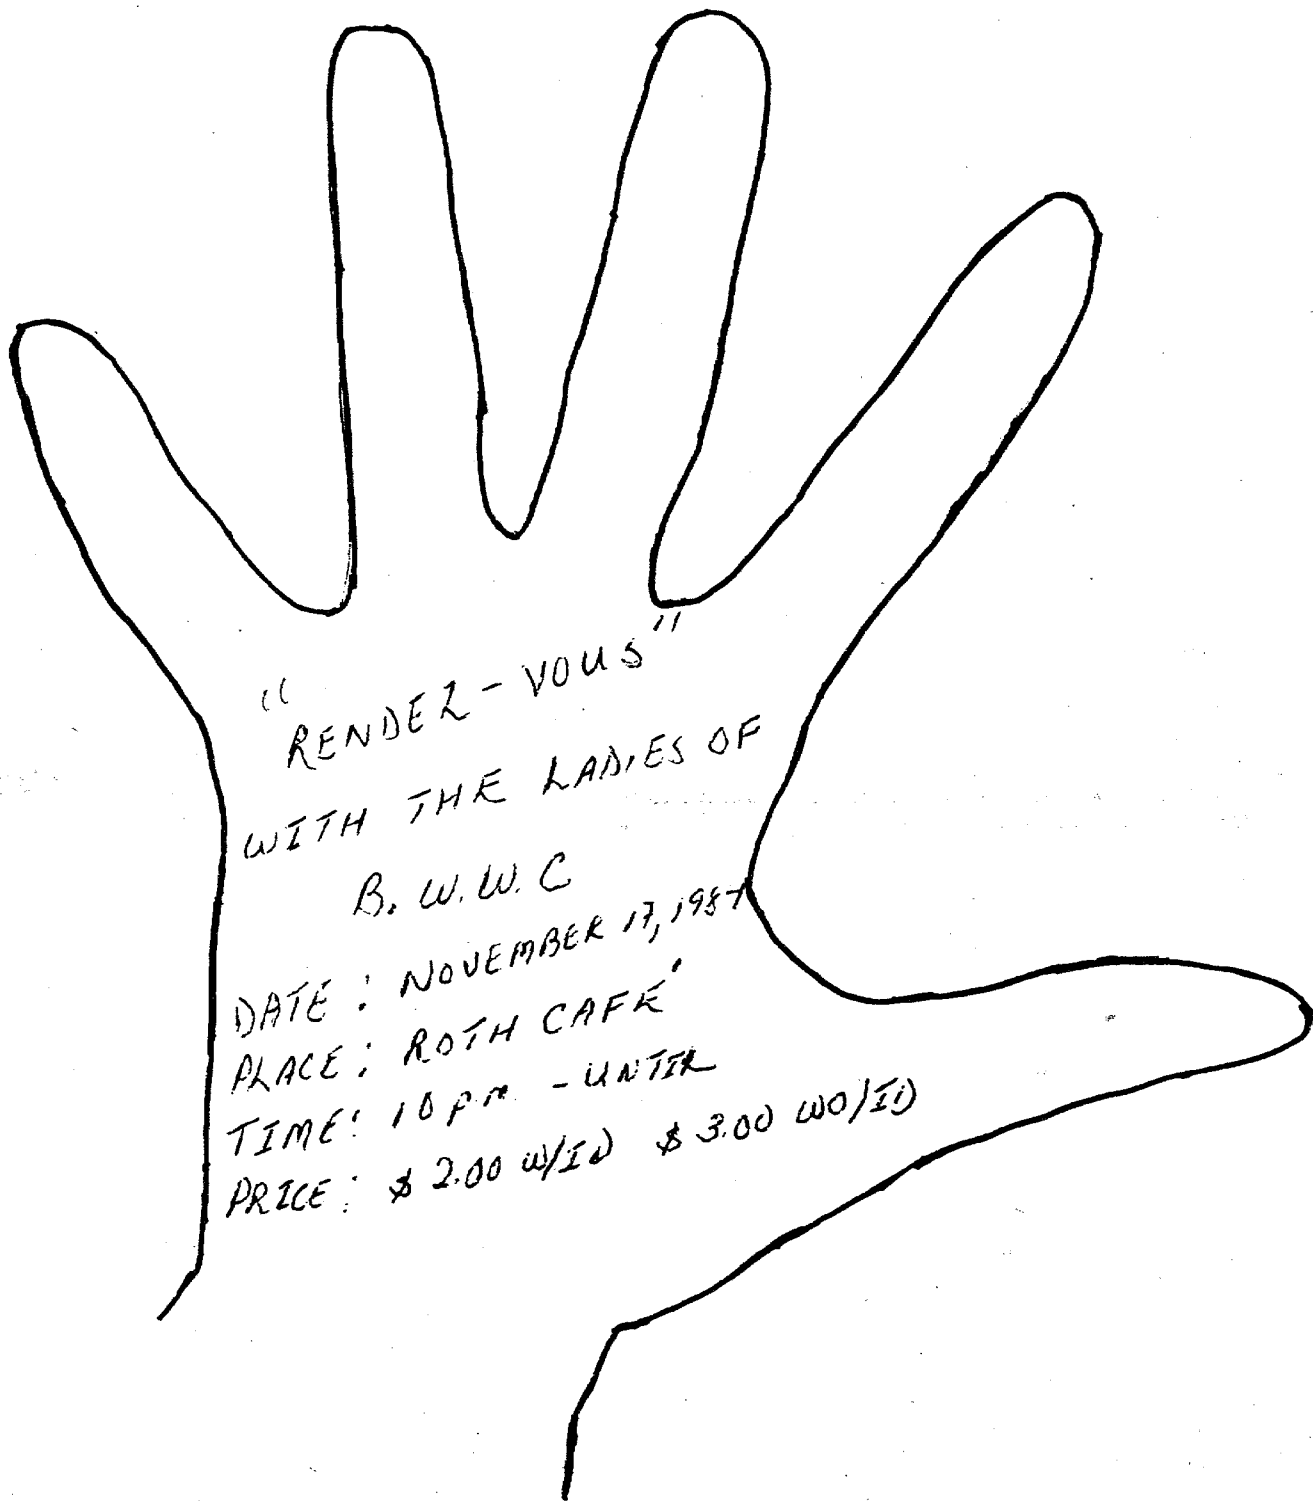 "RENDEZ-VOUS"
WITH THE LADIES OF
B. W. W. C
DATE: NOVEMBER 17, 1987
PLACE: ROTH CAFE'
TIME: 10 pm - UNTIL
PRICE: $2.00 W/ID $3.00 WO/ID